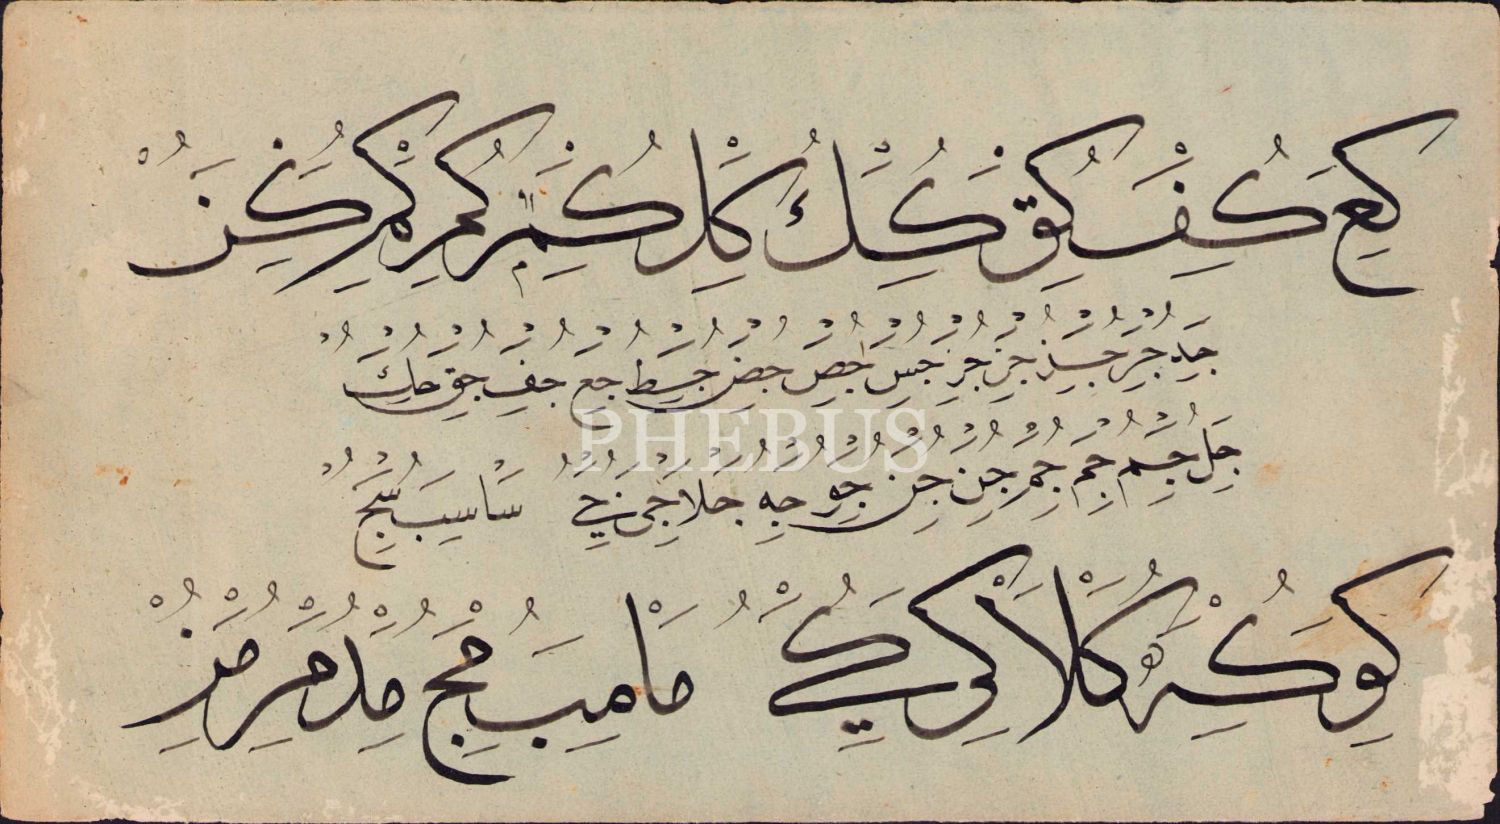 كع كف كق كك كل كم كم كم كن
جد جر جز جس جص جض جط جع جف جق جك
جل جم جم جم جن جن جو جه جلا جى جي سا سب سج
كو كه كلا كى كي ما مب مج مد مر مز
PHEBUS